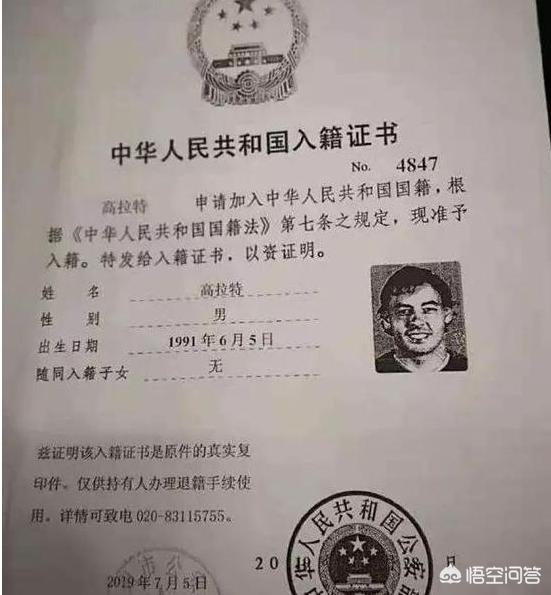 中华人民共和国入籍证书
No. 4847
高拉特 申请加入中华人民共和国国籍，根
据《中华人民共和国国籍法》第七条之规定，现准予
入籍。特发给入籍证书，以资证明。
姓 名 高拉特
性 别 男
出生日期 1991年6月5日
随同入籍子女 无
兹证明该入籍证书是原件的真实复
印件。仅供持有人办理退籍手续使
用。详情可致电020-83115755。
20 日
中华人民共和国公安部
2019年7月5日
悟空问答